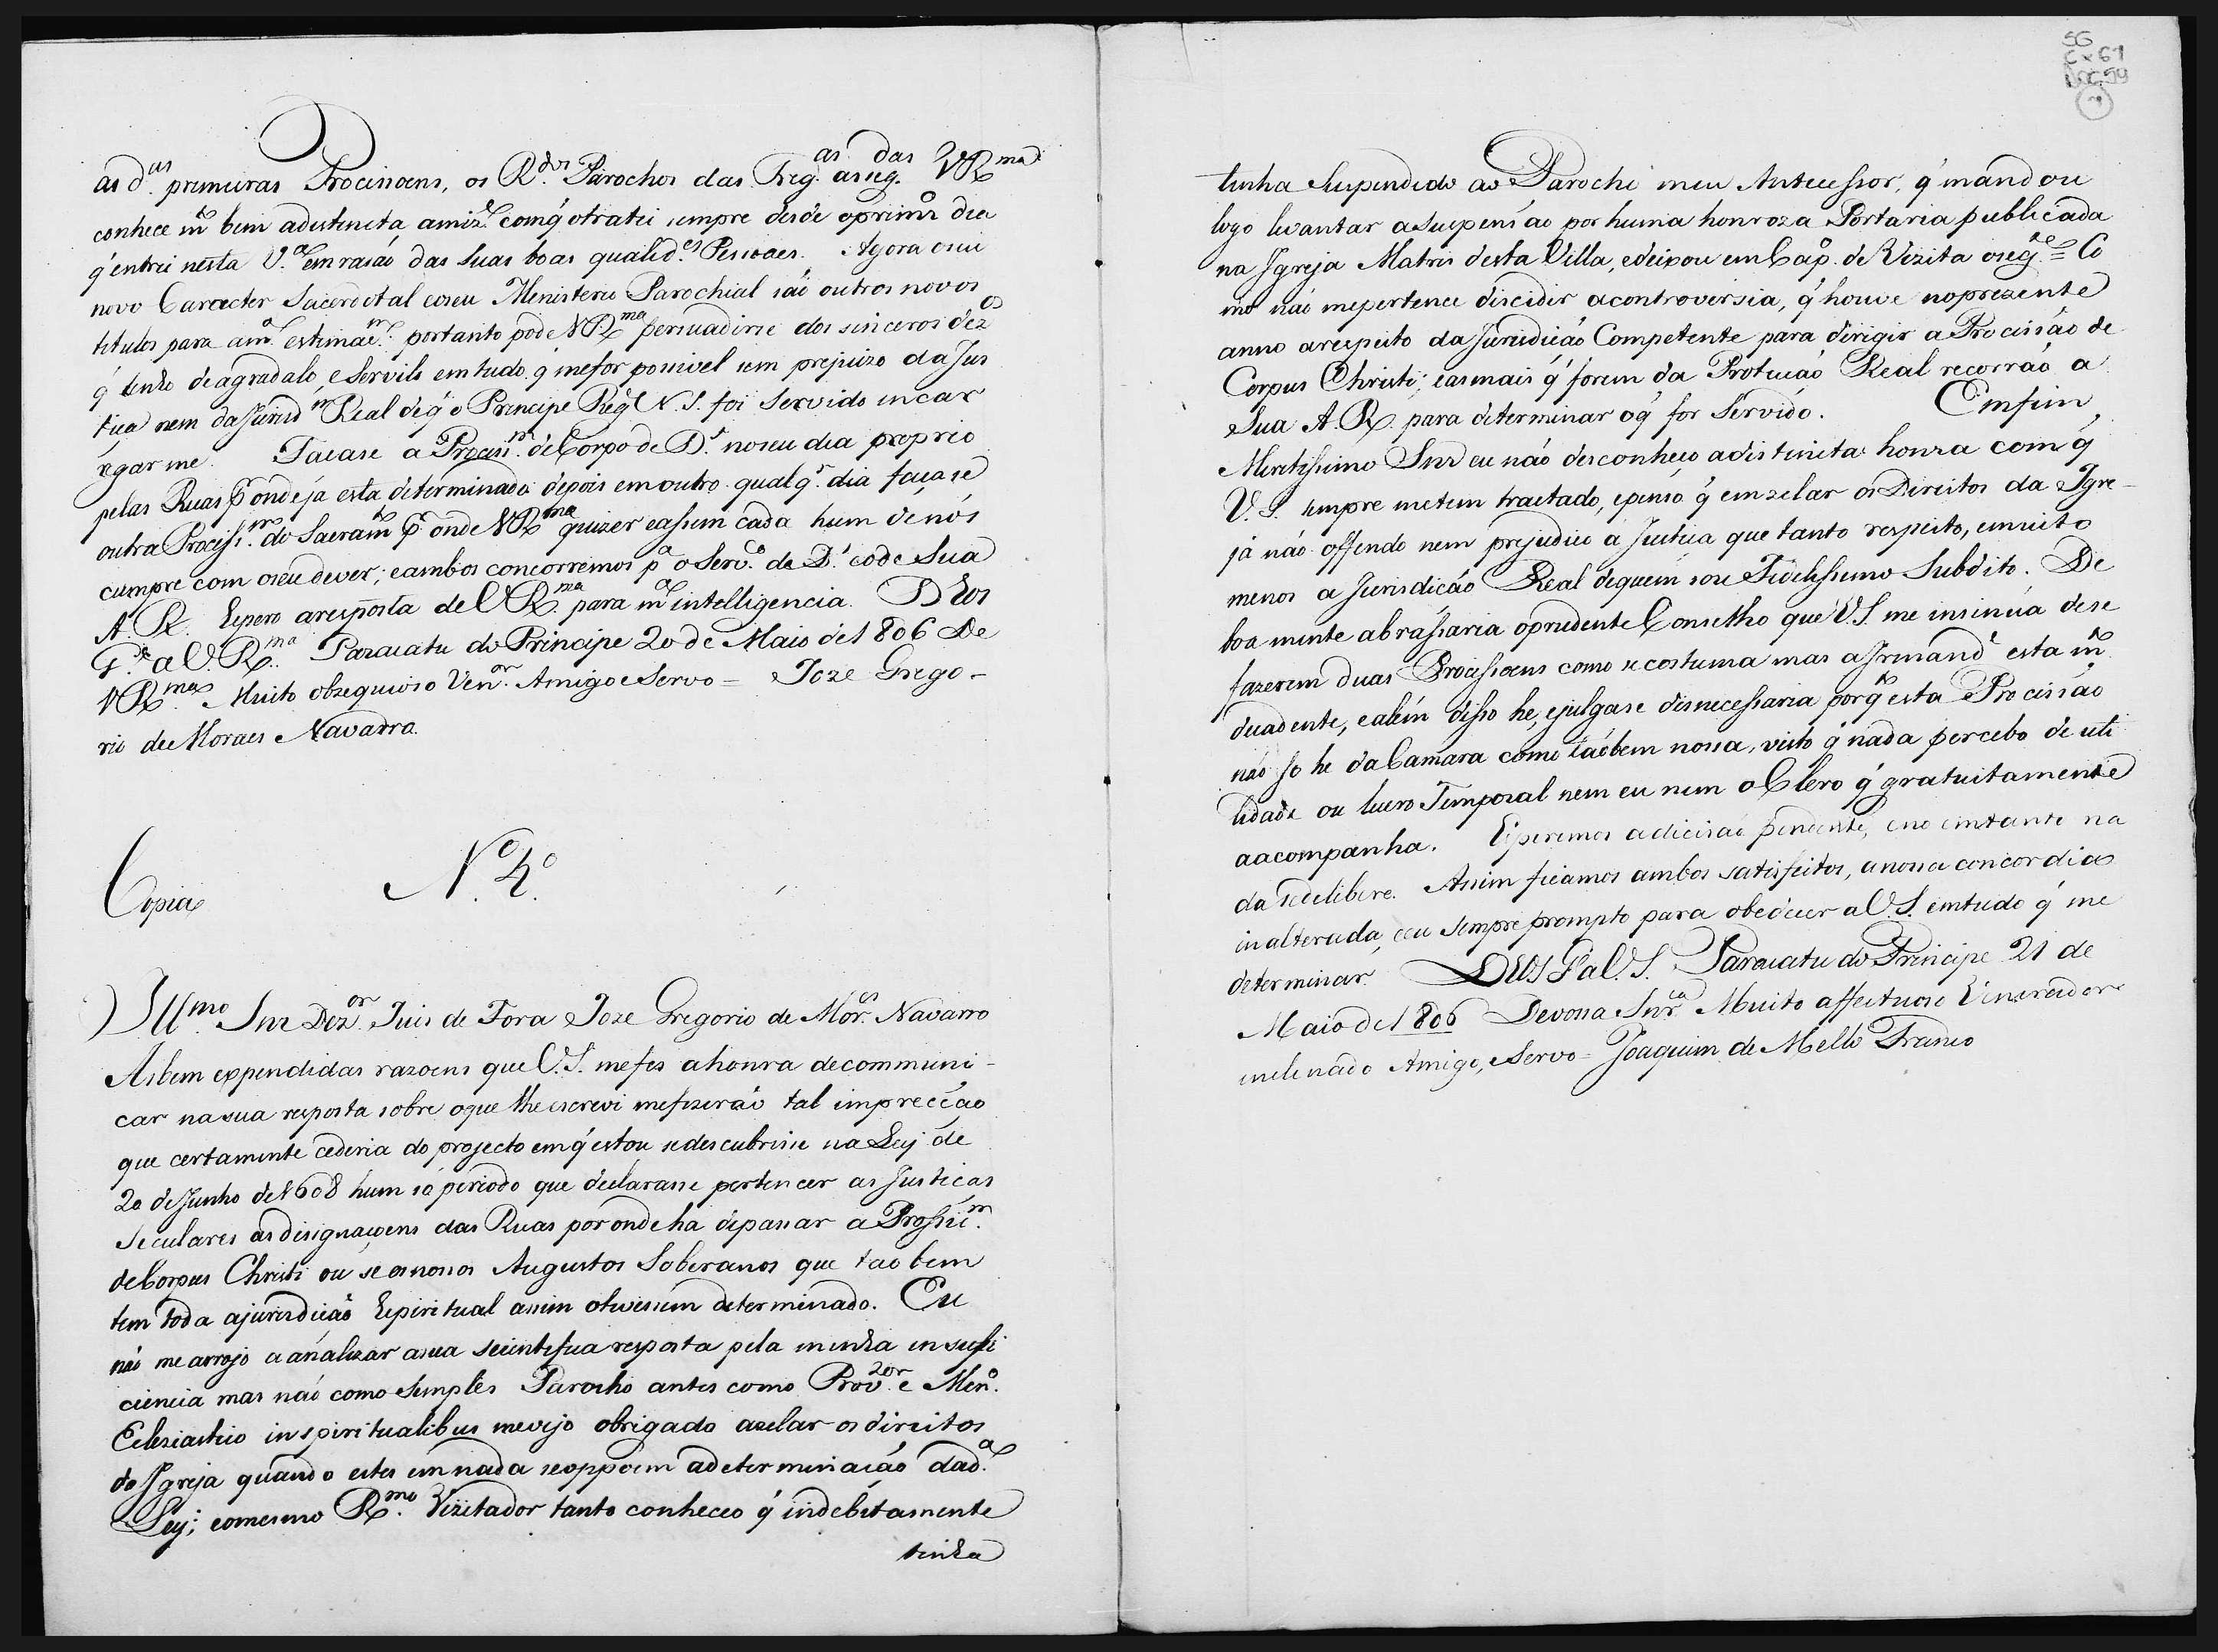 as d.as primeiras Procissoens, os R.dos Parochos das Freg.as das seg.as V R.ma
conhece m.to bem adistincta amiz.e comq' otratei sempre desde oprim.o dia
q' entrei nesta V.a em rasaõ das suas boas qualid.es Pessoaes. Agora oseu
novo Caracter Sacerdotal eoseu Ministerio Parochial saõ outros novos
titulos para am.a estimaç.m portanto pode V R.ma persuadirse dos sinceros dez.os
q' tenho deagradalo, eServilo emtudo q' mefor possivel sem prejuizo daJus
tiça nem daJurisd.m Real deq' o Principe Reg.e N. S. foi Servido encar
regarme. Facase a Prociss.m deCorpo de D.s noseu dia proprio
pelas Ruas p.r ondeja esta determinado depois emoutro qualq.r dia façase
outra Prociss.m do Sacram.to p.r onde V R.ma quizer eassim cada hum denós
cumpre com oseu dever; eambos concorremos p.a o Serv.o de D.s eode Sua
A. R. Espero aresposta de V R.ma para m.a intelligencia. Deos
G.de a V. R.ma Paracatu do Principe 20 de Maio de 1806 De
V R.ma Muito obzequiozo Ven.or Amigo eServo = Joze Grego-
rio de Moraes Navarro.
Copia
N.o 4.o
Ill.mo Snr Dez.or Juis de Fora Joze Gregorio de Mor.es Navarro
Asbem expendidas razoens que V. S. mefes ahonra decommuni-
car nasua resposta sobre oque lhe escrevi mefizeraõ tal imprecçaõ
que certamente cederia do projecto emq' estou sedescubrisse na Ley de
20 deJunho de 1608 hum só periodo que declarasse pertencer as Justiças
Seculares asdesignaçoens das Ruas porondeha depassar a Prossic.m
deCorpus Christi ou se osnossos Augustos Soberanos que taobem
tem toda ajurisdiçaõ Espiritual assim otivessem determinado. Eu
naõ me arrojo aanalizar asua scientifica resposta pela minha insufi
ciencia mas naõ como simples Parocho antes como Prov.zor e Men.o
Ecleziastico inspiritualibus mevejo obrigado azelar osdireitos
da Igreja quando estes emnada seoppoem adeterminaçaõ dad.a
Ley; eomesmo R.mo Vizitador tanto conheceo q' indebitamente
tinha
tinha Suspendido ao Parocho meu Antecessor, q' mandou
logo levantar asuspensaõ por huma honroza Portaria publicada
na Igreja Matris desta Villa, edeixou em Cap.o de Vizita oseg.te = Co
mo naõ mepertence discidir acontroversia, q' houve noprezente
anno arespeito da Jurisdiçaõ Competente para dirigir a Procissão de
Corpus Christi; easmais q' forem da Protecaõ Real recorraõ a
Sua A. R. para determinar oq' for Servido. Emfim
Meretissimo Snr eu naõ desconheço adistincta honra comq'
V. S. sempre metem tractado, epenso q' emzelar osDireitos da Igre-
ja naõ offendo nem prejudico a Justiça que tanto respeito, emuito
menos a Jurisdicaõ Real dequem sou Fidelissimo Subdito. De
boamente abrassaria oprudente Conselho que V. S. me insinúa dese
fazerem duas Procissoens como secostuma mas aIrmand.e esta m.to
decadente, ealém disso he, ejulgase desnecessaria porq.to esta Procissáo
naõ so he daCamara como taõbem nossa, visto q' nada percebo de uti
lidade ou lucro Temporal nem eu nem oClero q' gratuitamente
aacompanha. Esperemos adicisaõ pendente, eno emtanto na
da sedelibere. Assim ficamos ambos satisfeitos, anossa concordia
inalterada, eeu sempre prompto para obedecer a V. S. emtudo q' me
determinar. Deos G.e a V. S. Paracatu do Principe 21 de
Maio de 1806 Devossa Snr.a Muito affectuoso Venerador
inclinado Amigo, eServo = Joaquim de Mello Franco
SG
Cx 61
Doc. 59